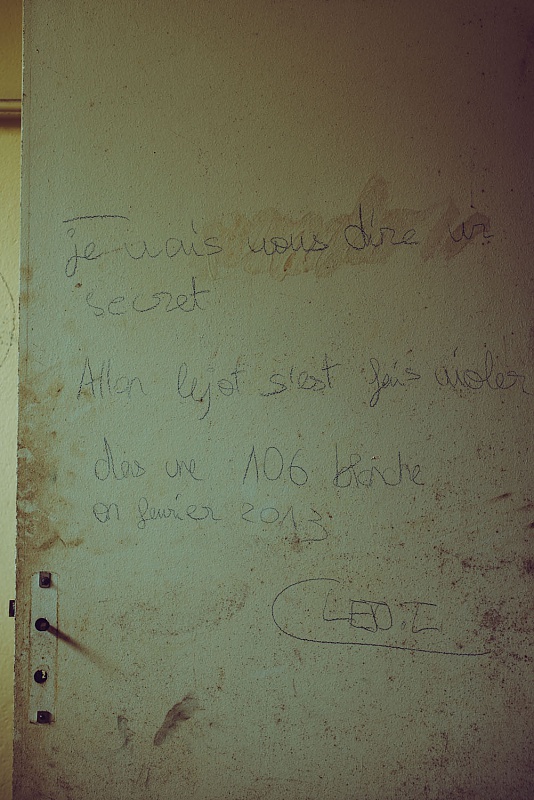 je vais vous dire un
secret
Allan lejot s'est fais violer
dans une 106 blanche
en fevrier 2013